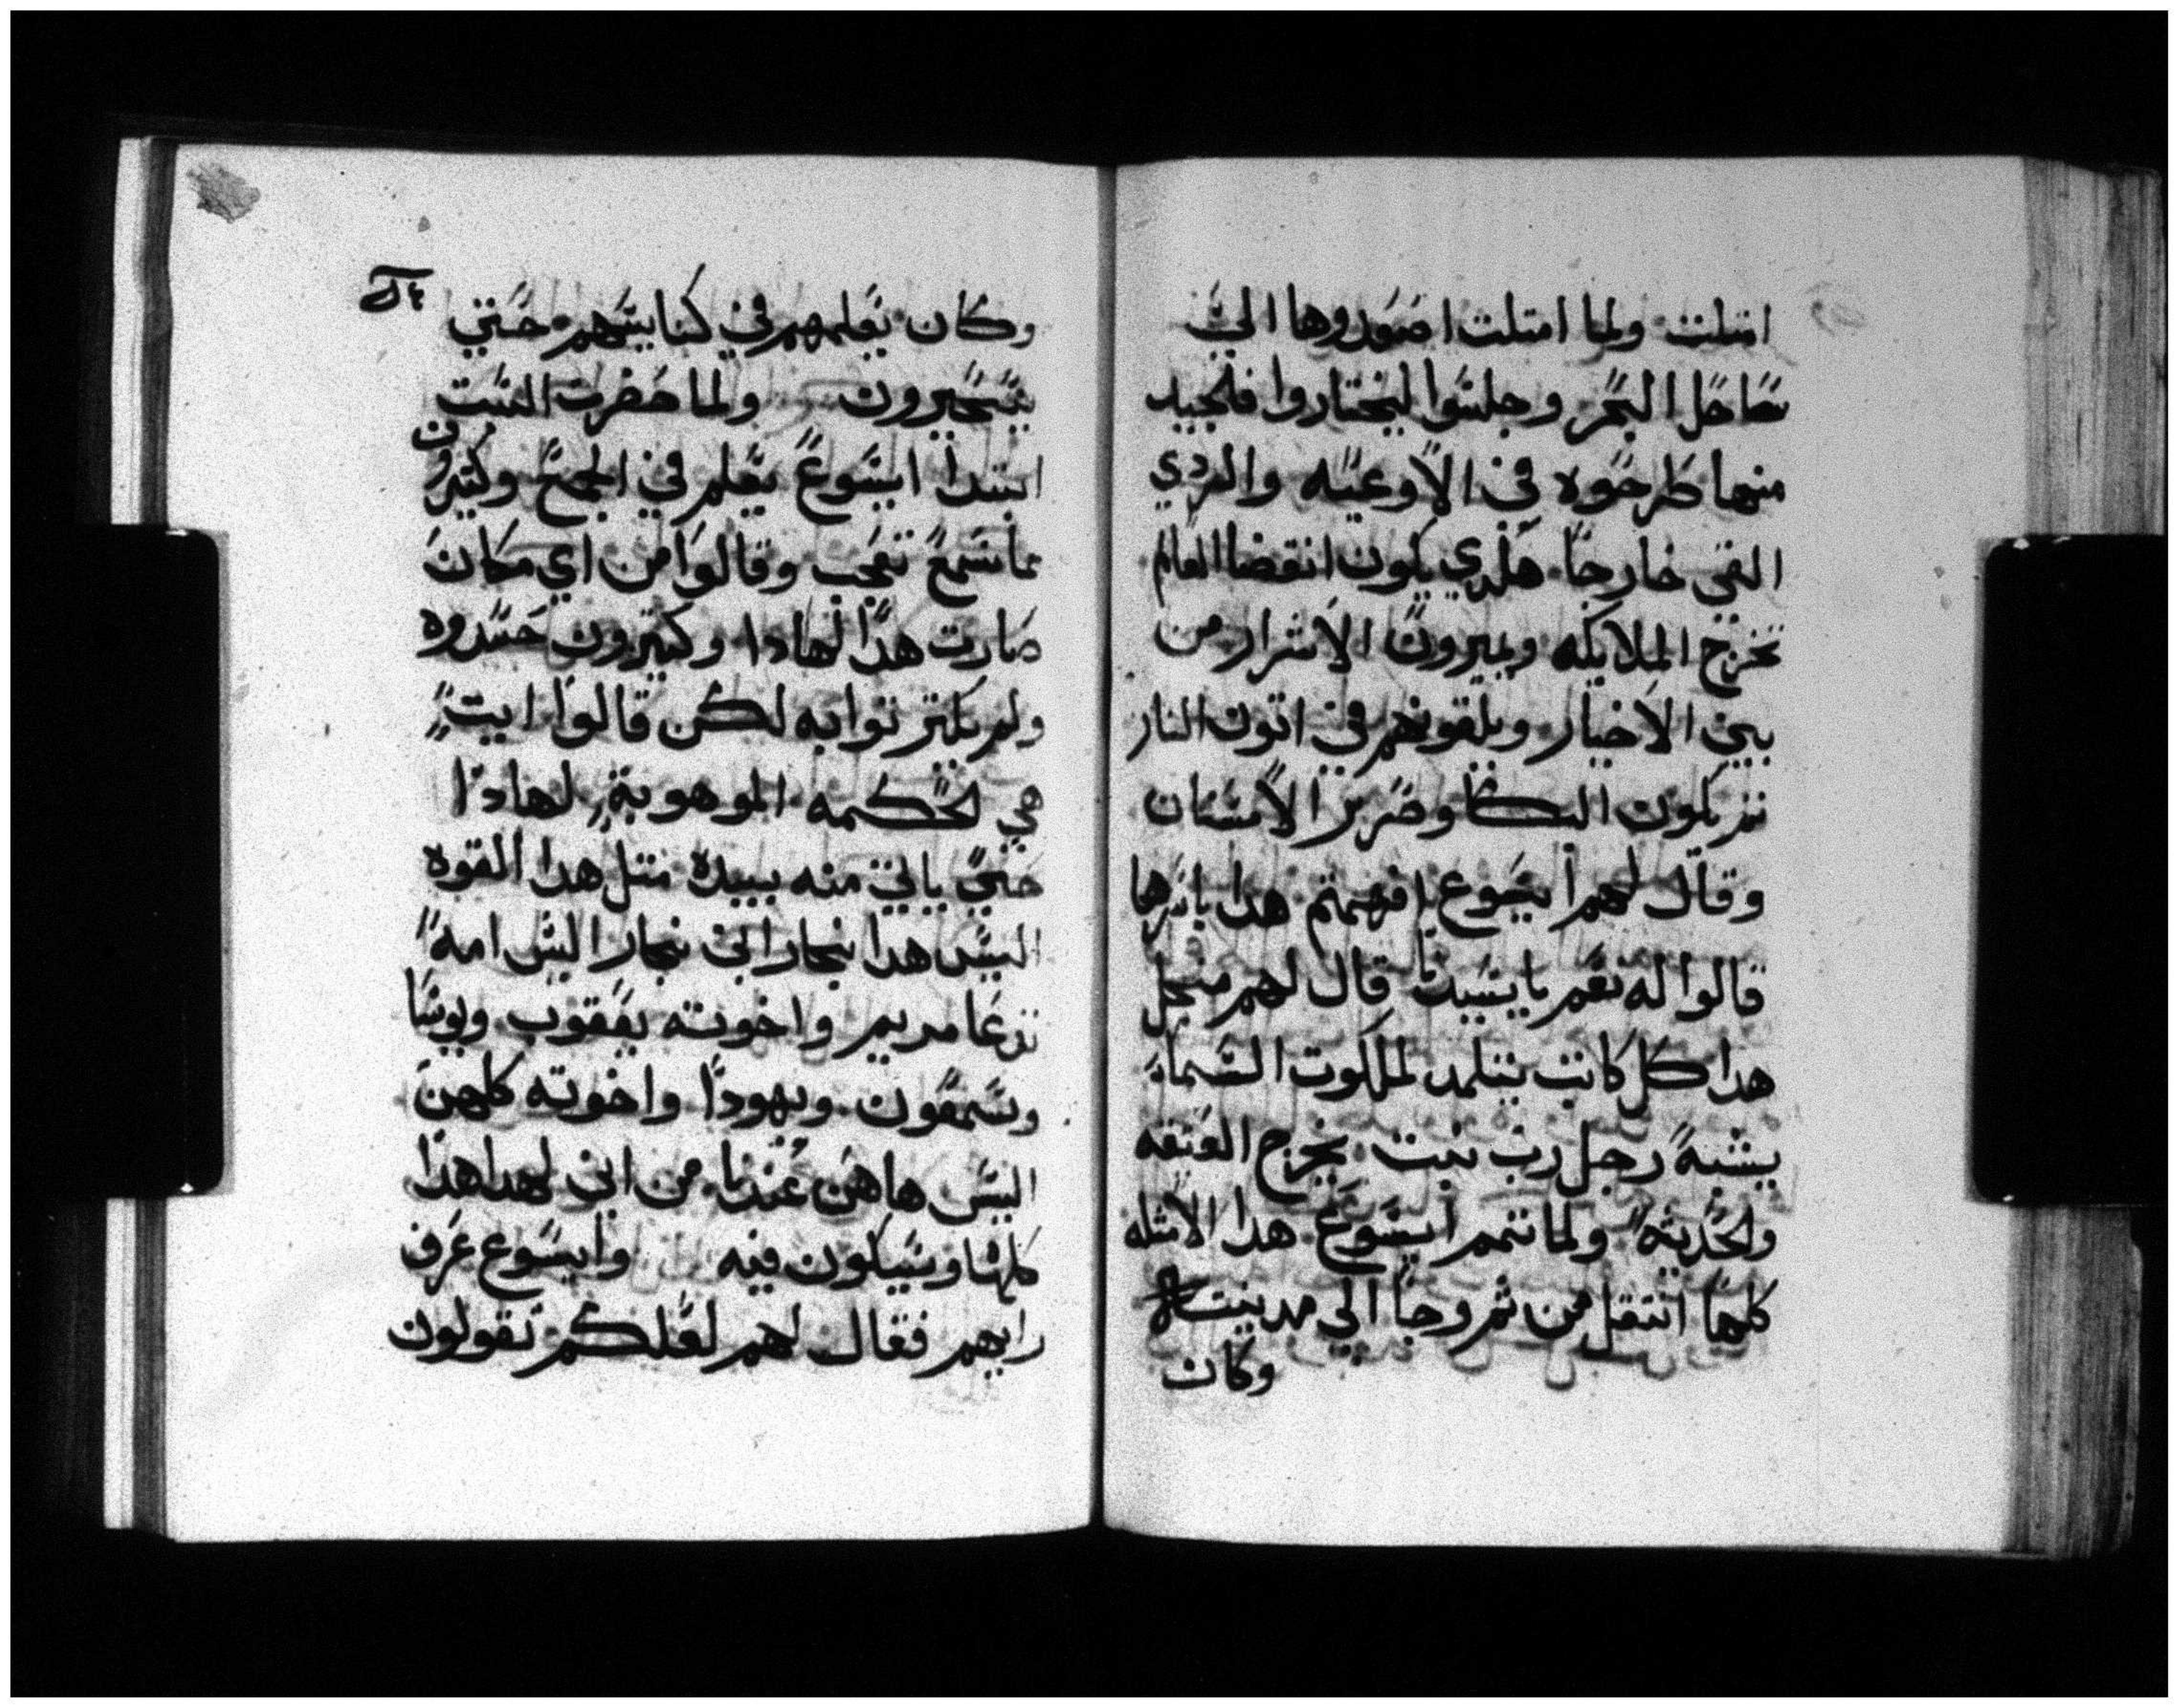 امتلت ولما امتلت اصعدوها الي
ساحل البحر وجلسوا ليختاروا فلجيد
منها طرحوه في الاوعيه والردي
القي خارجا هكدي يكون انقضا العالم
تخرج الملايكه ويميزون الاشرار من
بين الاخيار ويلقونهم في اتون النار
ثم يكون البكا وصرير الاسنان
وقال لهم ايسوع افهمتم هدا باسرها
قالوا له نعم يا سيد قال لهم من اجل
هدا كل كاتب يتلمد لملكوت السماء
يشبه رجل رب بيت يخرج العتقه
ولحديثه ولما تمم ايسوع هدا الامثله
كلها انتقل من ثم وجا الي مدينته
وكان
وكان يعلمهم في كنايسهم حتي
يتحيرون ولما حضرت السبت
ابتدا ايسوع يعلم في المجمع وكثيرون
مما سمع تعجب وقالوا من اي مكان
صارت هدا لهادا وكثيرون حسدوه
ولم يكثرثوا به لكن قالوا ايت
هي لحكمه الموهوبة لهادا
حتي ياتي منه بيده متل هدا القوه
اليس هدا نجار ابن نجار اليس امه
تدعا مريم واخوته يعقوب ويوسا
وسمعون ويهودا واخوته كلهن
اليس هاهن عندنا من اين لهدا هدا
كلها وسيكون فيه وايسوع عرف
رايهم فقال لهم لعلكم تقولون